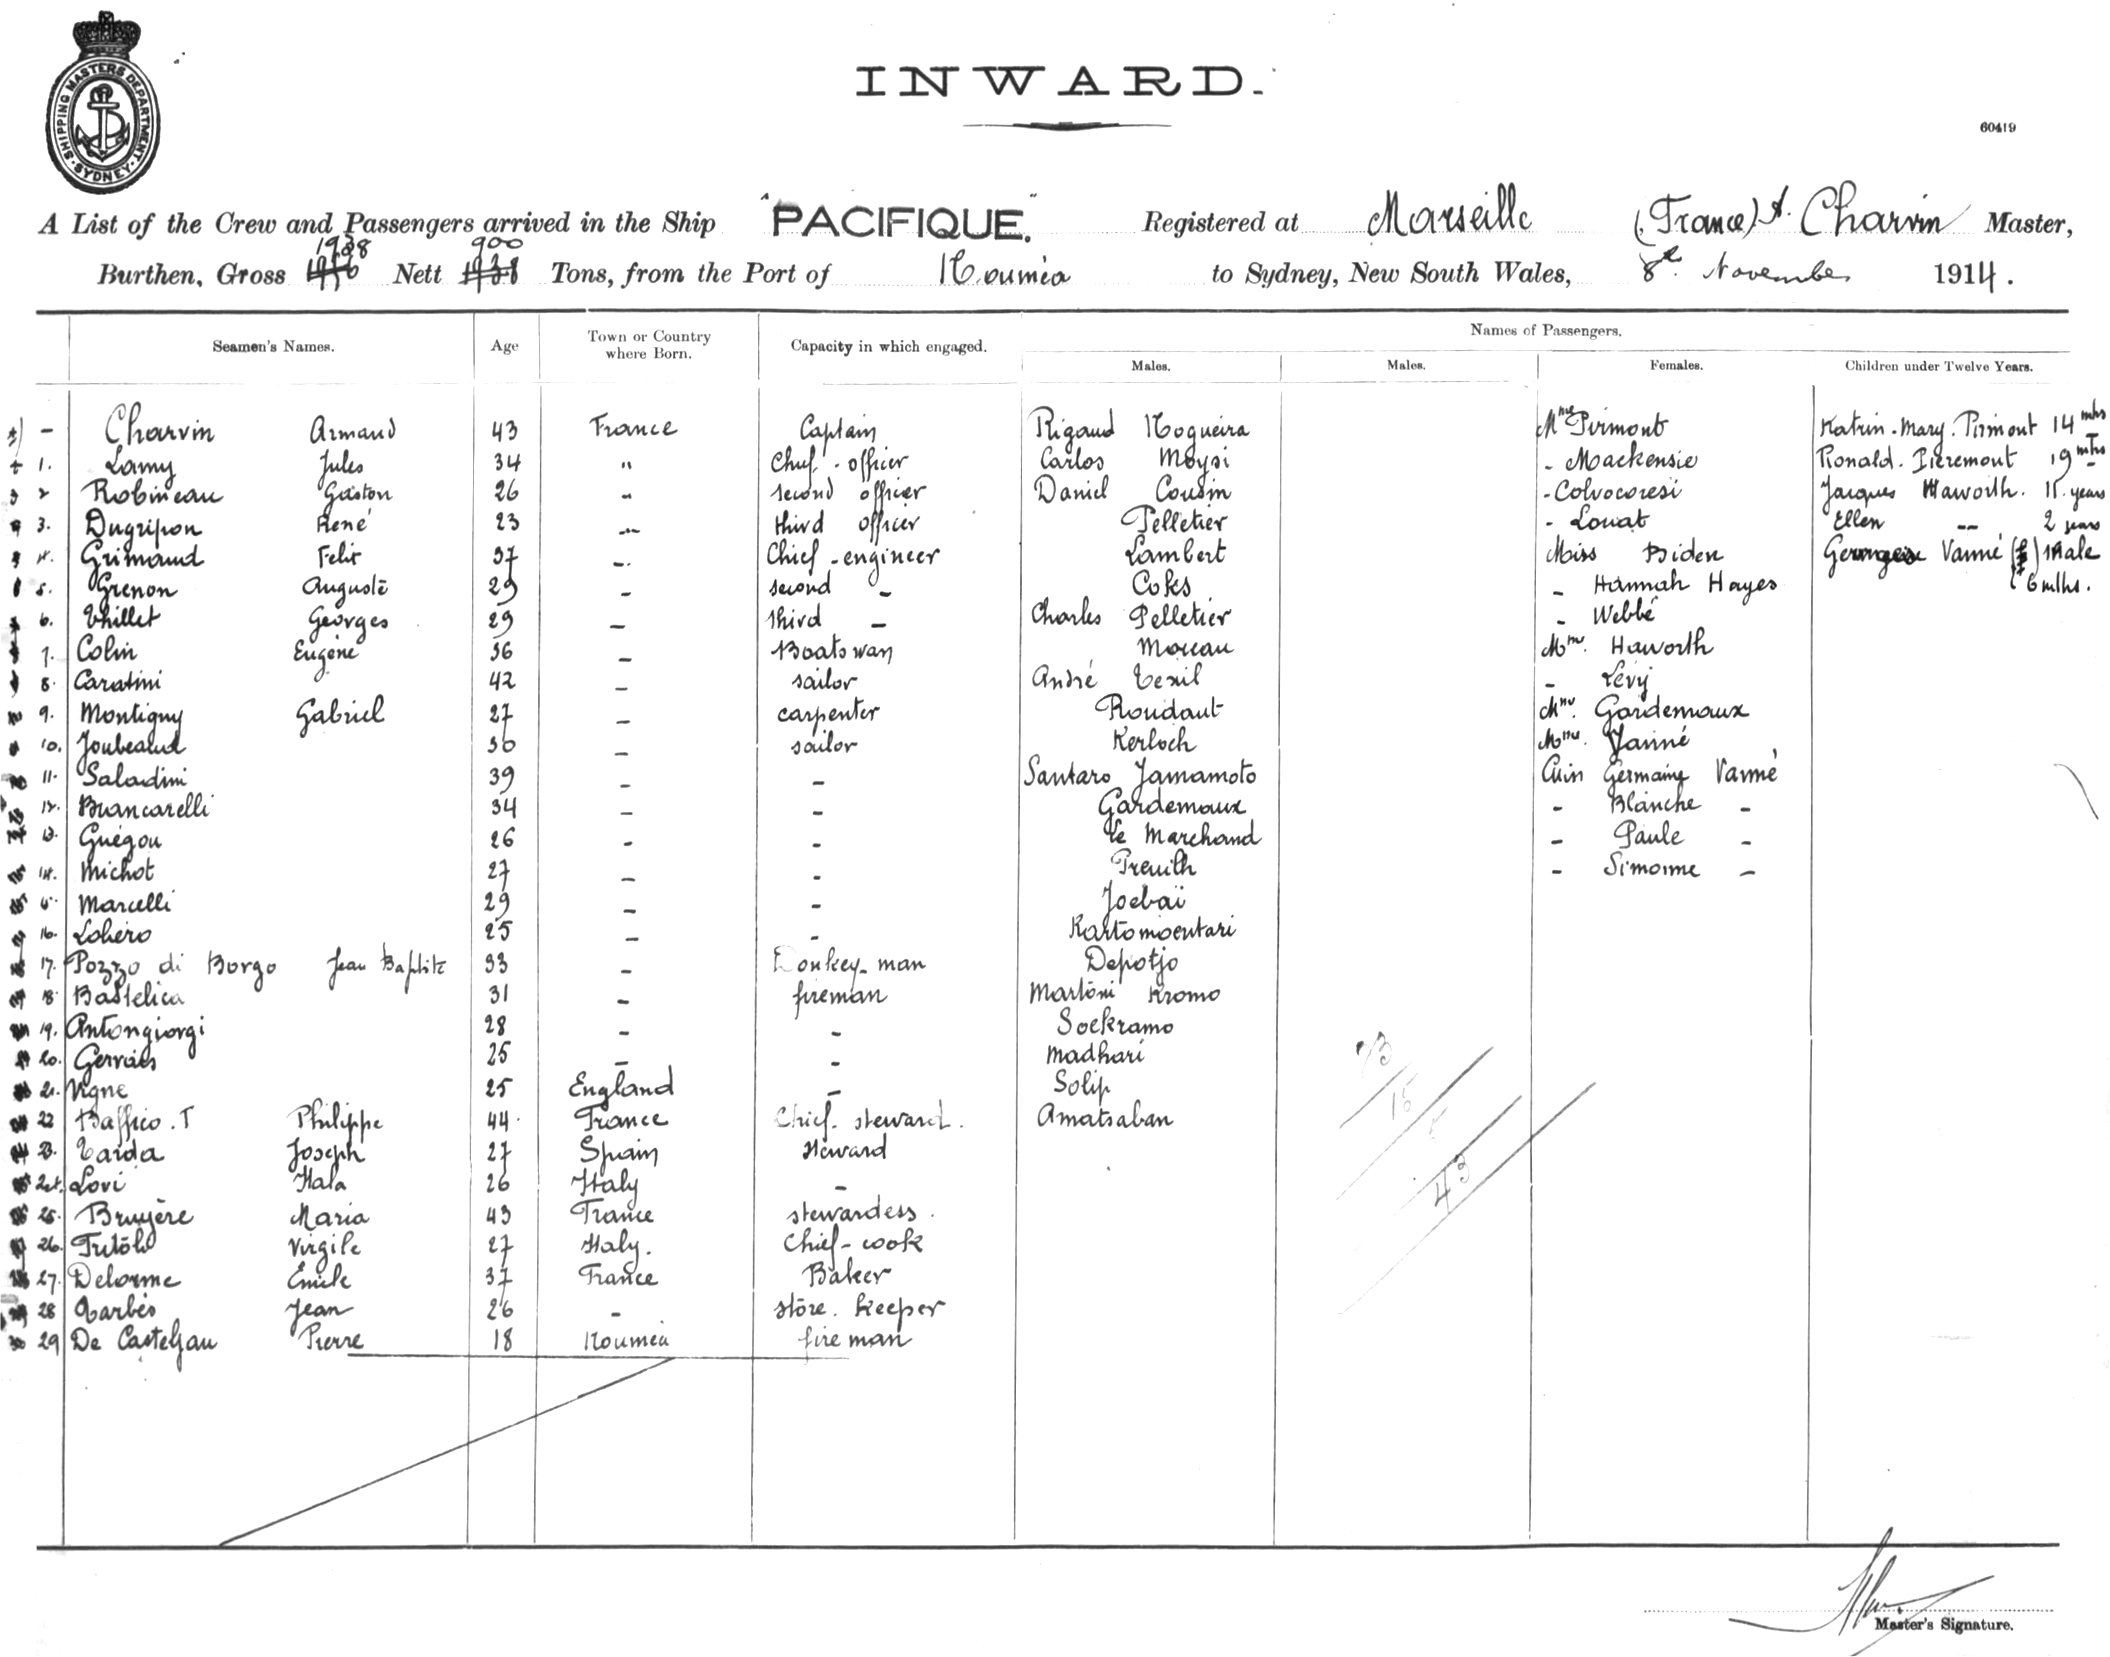 SHIPPING MASTERS DEPARTMENT. SYDNEY
INWARD.
60419
A List of the Crew and Passengers arrived in the Ship "PACIFIQUE." Registered at Marseille (France) A. Charvin Master,
1938 900
Burthen, Gross Nett 1938 Tons, from the Port of Nouméa to Sydney, New South Wales, 8th November 1914.
Names of Passengers.
Seamen's Names. Age Town or Country where Born. Capacity in which engaged. Males. Males. Females. Children under Twelve Years.
- Charvin Armand 43 France Captain Rigaud Nogueira Mme Pirmont Katrin-Mary. Pirmont 14 mhs
1. Lamy Jules 34 " Chief-officer Carlos Moysi - Mackensie Ronald. Pieremont 19 mths
2 Robineau Gaston 26 " second officer Daniel Cousin - Colvocoresi Jacques Haworth. 11. years
3. Dugripon René 23 " third officer Pelletier - Louat Ellen -- 2 years
4. Grimaud Felix 37 - Chief-engineer Lambert Miss Biden Vanné male
5. Grenon Auguste 29 - second - Coks - Hannah Hayes 6 mths.
6. Thillet Georges 29 - third - Charles Pelletier - Webbé
7. Colin Eugène 36 - Boatswan Moreau Mme. Haworth
8. Caratini 42 - sailor André Texil - Lévy
9. Montigny Gabriel 27 - carpenter Roudaut Mme. Gardemaux
10. Joubeaud 30 - sailor Kerloch Mme. Vanné
11. Saladini 39 - - Santaro Jamamoto Germaine Vanné
12. Biancarelli 34 - - Gardemaux - Blanche -
13. Guégou 26 - - Le Marchand - Paule -
14. Michot 27 - - Preuilh - Simonne -
15. Marcelli 29 - - Joebaï
16. Lohéro 25 - - Kartomoentari
17. Pozzo di Borgo Jean Baptiste 33 - Donkey-man Depotjo
18. Bastelica 31 - fireman Martoni Kromo
19. Antongiorgi 28 - - Soekramo
20. Gervais 25 - - Madhari
21. Vigne 25 England - Solip
22 Baffico. T Philippe 44 France Chief-steward. Amatsaban
23. Taida Joseph 27 Spain steward
24. Lovi Itala 26 Italy -
25. Bruyère Maria 43 France stewardess.
26. Virgile 27 Italy. Chief-cook
27. Delorme Emile 37 France Baker
28 Jean 26 - store. keeper
29 De Casteljau Pierre 18 Nouméa fireman
23
15
5
43
Master's Signature.